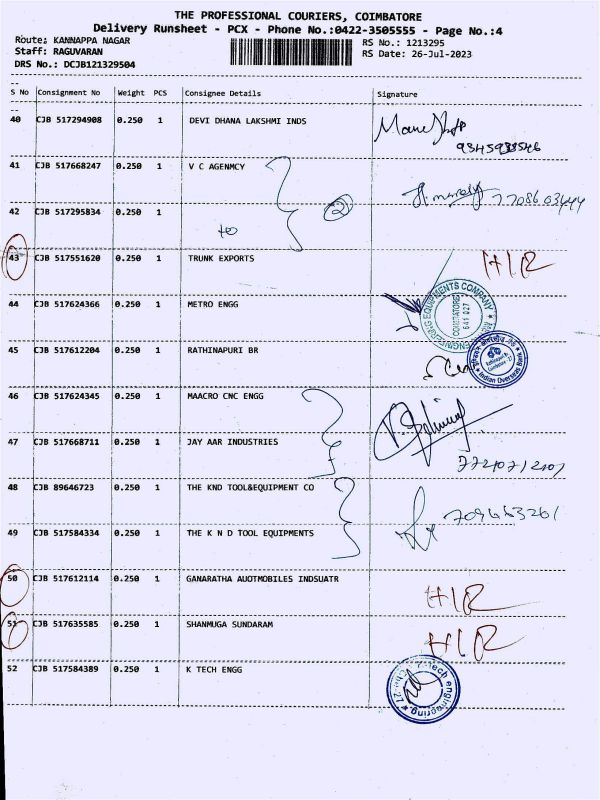 THE PROFESSIONAL COURIERS, COIMBATORE
Delivery Runsheet - PCX - Phone No.:0422-3505555 - Page No.:4
Route: KANNAPPA NAGAR RS No.: 1213295
Staff: RAGUVARAN RS Date: 26-Jul-2023
DRS No.: DCJB121329504
S No Consignment No Weight PCS Consignee Details Signature
40 CJB 517294908 0.250 1 DEVI DHANA LAKSHMI INDS
41 CJB 517668247 0.250 1 V C AGENMCY
2 7708603444
42 CJB 517295834 0.250 1
to
43 CJB 517551620 0.250 1 TRUNK EXPORTS HIR
44 CJB 517624366 0.250 1 METRO ENGG
ENGINEERING EQUIPMENTS COMPANY
COIMBATORE
641 027
45 CJB 517612204 0.250 1 RATHINAPURI BR
Indian Overseas Bank
46 CJB 517624345 0.250 1 MAACRO CNC ENGG
47 CJB 517668711 0.250 1 JAY AAR INDUSTRIES
48 CJB 89646723 0.250 1 THE KND TOOL&EQUIPMENT CO
49 CJB 517584334 0.250 1 THE K N D TOOL EQUIPMENTS
50 CJB 517612114 0.250 1 GANARATHA AUOTMOBILES INDSUATR HIR
51 CJB 517635585 0.250 1 SHANMUGA SUNDARAM HIR
52 CJB 517584389 0.250 1 K TECH ENGG